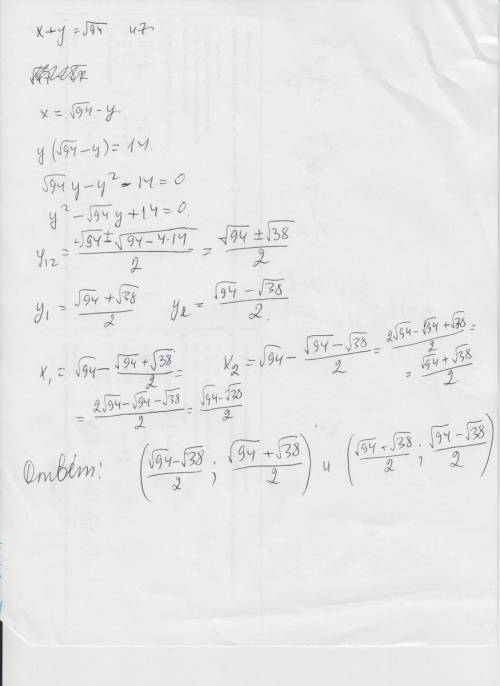 x+y = √94 из
x = √94 - y
y(√94 - y) = 14.
√94 y - y² - 14 = 0
y² - √94 y + 14 = 0.
y₁₂ = (√94 ± √(94 - 4·14))/2 = (√94 ± √38)/2
y₁ = (√94 + √38)/2 y₂ = (√94 - √38)/2.
x₁ = √94 - (√94 + √38)/2 = x₂ = √94 - (√94 - √38)/2 = (2√94 - √94 + √38)/2 =
= (2√94 - √94 - √38)/2 = (√94 - √38)/2 = (√94 + √38)/2
Ответ: ((√94 - √38)/2 ; (√94 + √38)/2) и ((√94 + √38)/2 ; (√94 - √38)/2)